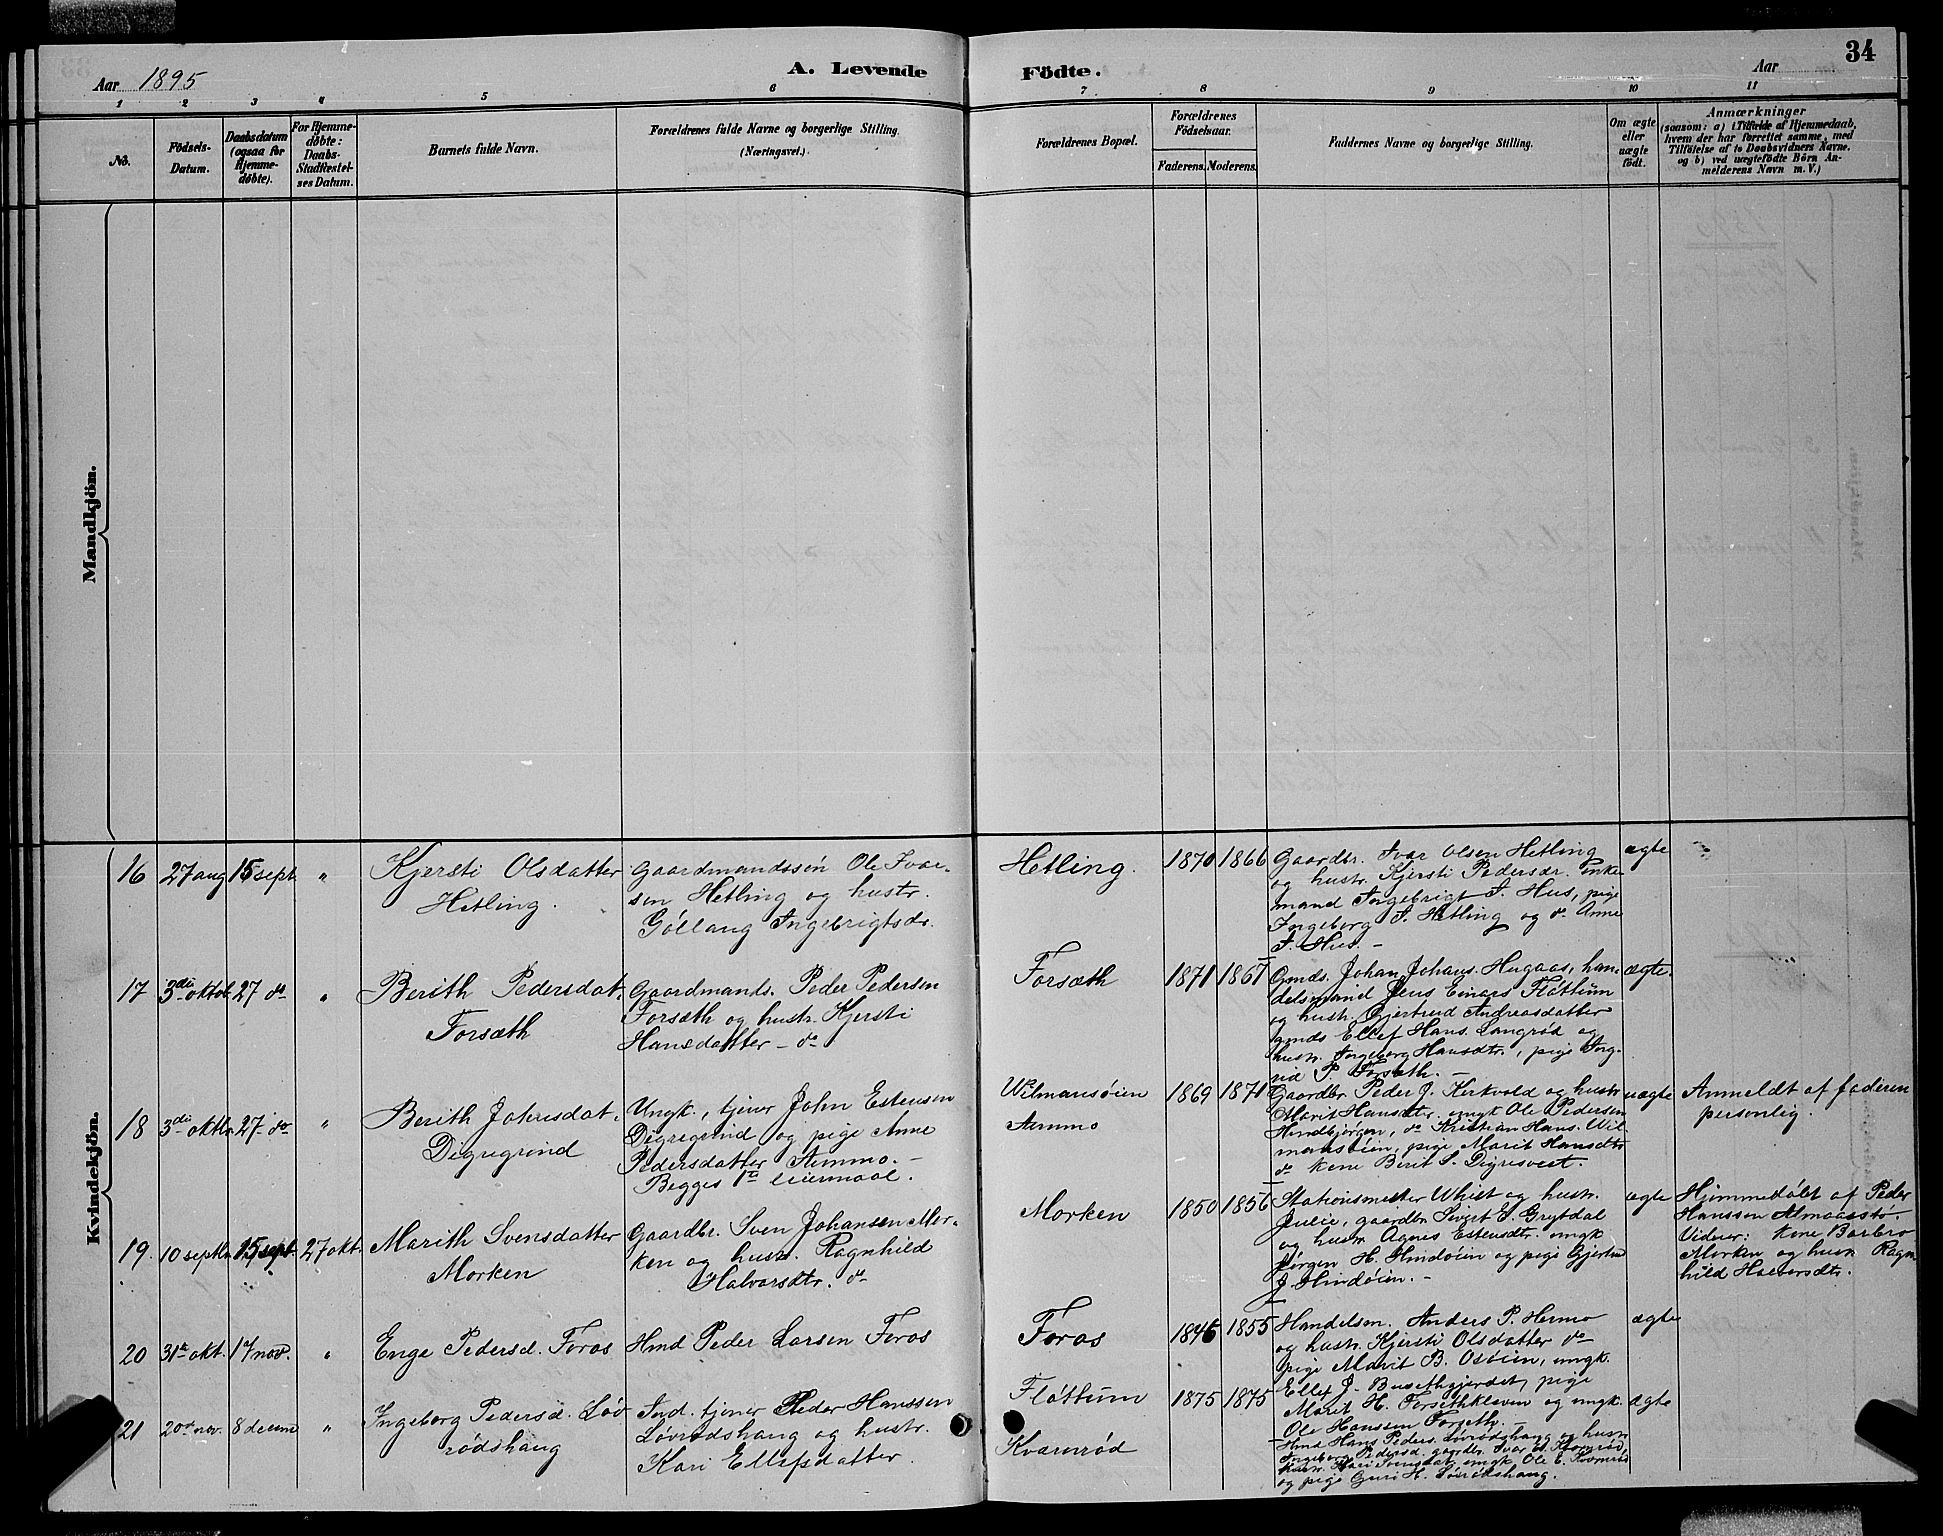 34
Aar 1895 A. Levende Födte. Aar
1 2 3 4 5 6 7 8 9 10 11
No.
Födsels-
Datum.
Daabsdatum
(ogsaa for
Hjemme-
döbte).
For Hjemme-
döbte:
Daabs-
Stadfæstel-
ses Datum.
Barnets fulde Navn.
Forældrenes fulde Navne og borgerlige Stilling.
(Næringsvei.)
Forældrenes Bopæl.
Forældrenes
Födselsaar.
Faderens. Moderens.
Faddernes Navne og borgerlige Stilling.
Om ægte
eller
uægte
födt.
Anmærkninger
(saasom: a) i Tilfælde af Hjemmedaab,
hvem der har forrettet samme, med
Tilföielse af to Daabsvidners Navne.
og b) ved uægtefödte Börn An-
melderens Navn m. V.)
Mandkjön.
Kvindekjön.
16 27 aug 15 sept "
Kjersti Olsdatter
Hetling.
Gaardmandssön Ole Ivar-
sen Hetling og hustr.
Göllaug Ingebrigtsdr.
Hetling.
1870 1866
Gaardbr. Ivar Olsen Hetling
og hustr. Kjersti Pedersdr. Enke-
mand Ingebrigt I. Hus, pige
Ingeborg I. Hetling og do Anne
I. Hus. –
ægte
17 3die oktob. 27 do "
Berith Pedersdat.
Forsæth
Gaardmands. Peder Pedersen
Forsæth og hustr. Kjersti
Hansdatter – do
Forsæth
1871 1867
Gmds. Johan Johans. Hugaas, han-
delsmand Jens Einars Flöttum
og hustr. Gjertrud Andreasdatter
gmds Ellef Hans. Langröd og
hustr. Ingeborg Hansdtr., pige Ing-
rid P. Forsæth. –
ægte.
18 3die oktbr. 27 do "
Berith Johnsdat.
Digregrind
Ungk., tjener John Estensen
Digregrind og pige Anne
Pedersdatter Aunmo. –
Begges 1ste leiermaal.
Wilmansöien
Aunmo
1869 1871
Gaardbr. Peder J. Kirkvold og hustr
Marit Hansdtr. ungk Ole Pedersen
Hindbjörgen, do Kristian Hans. Wil-
mansöien, pige Marit Hansdtr
do kone Berit S. Digresvedt.
uægte
Anmeldt af faderen
personlig.
19. 10 septbr. 15 sept. 27 okt.
Marith Svensdatter
Morken
Gaardbr. Sven Johansen Mor-
ken og hustr. Ragnhild
Halvarsdtr. do
Morken
1850 1856
Stationsmester Whist og hustr.
Julie, gaardbr Sivert E. Grytdal
og hustr Agnes Estensdtr. ungk
Jörgen H. Hindöien og pige Gjertrud
J. Hindöien. –
ægte
Hjemmedöbt af Peder
Hanssen Almaasströ.
Vidner: kone Barbro
Morken og hustr Ragn-
hild Halvorsdtr.
20 31te okt. 17 nov. "
Enge Pedersd. Foros
Hmd Peder Larsen Foros
Foros
1846 1855
Handelsm. Anders P. Hermo
og hustr. Kjersti Olsdatter do
pige Marit B. Osöien, ungk.
Ellef J. Busethgjerdet, pige
Marit H. Forsethkleven og ungk.
Ole Hanssen Forseth. –
ægte
21 20de nov. 8 decem "
Ingeborg Pedersd. Löv
rödshaug
Ind. tjener Peder Hanssen
Lövrödshaug og hustr.
Kari Ellefsdatter.
Flöttum
Kvamröd
1875 1875
Hmd Hans Peders. Lövrödshaug og hustr
Ingeborg Pedersd. gaardbr. Ivar H. Kvamröd,
hustr. Kari Svensdat. ungk Ole E. Kvamröd
og pige Guri H. Lövrödshaug.
ægte